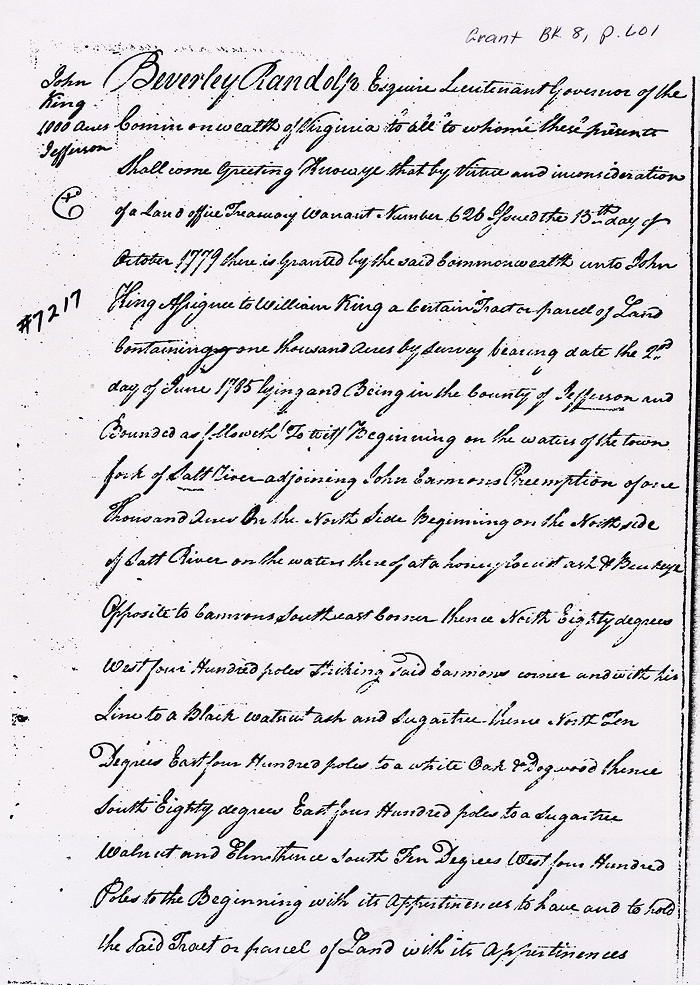 Grant BK 8, p. 601
John
King
1000 Acres
Jefferson
#7217
Beverley Randolph Esquire Lieutenant Governor of the
Common wealth of Virginia "to all" to whome these presents
Shall come Greeting Know ye that by Virtue and inconsideration
of a Land office Treasury Warrant Number 626 Issued the 15th day of
October 1779 there is Granted by the said Commonwealth unto John
King Assignee to William King a Certain Tract or parcel of Land
Containing one thousand Acres by Survey bearing date the 2nd
day of June 1785 lying and Being in the County of Jefferson and
Bounded as followeth "To wit" Beginning on the waters of the town
fork of Salt River adjoining John Eamons Preemption of one
Thousand Acres On the North Side Beginning on the North side
of Salt River on the waters thereof at a honey locust ash & Buckeye
Opposite to Eamons South east Corner thence North Eighty degrees
West four Hundred poles Striking Said Eamons corner and with his
Line to a Black walnut ash and Sugartree thence North Ten
Degrees East four Hundred poles to a white Oak & Dogwood thence
South Eighty degrees East four Hundred poles to a Sugartree
Walnut and Elm thence South Ten Degrees West four Hundred
Poles to the Beginning with its Appertinences to have and to hold
the said Tract or parcel of Land with its Appertinences